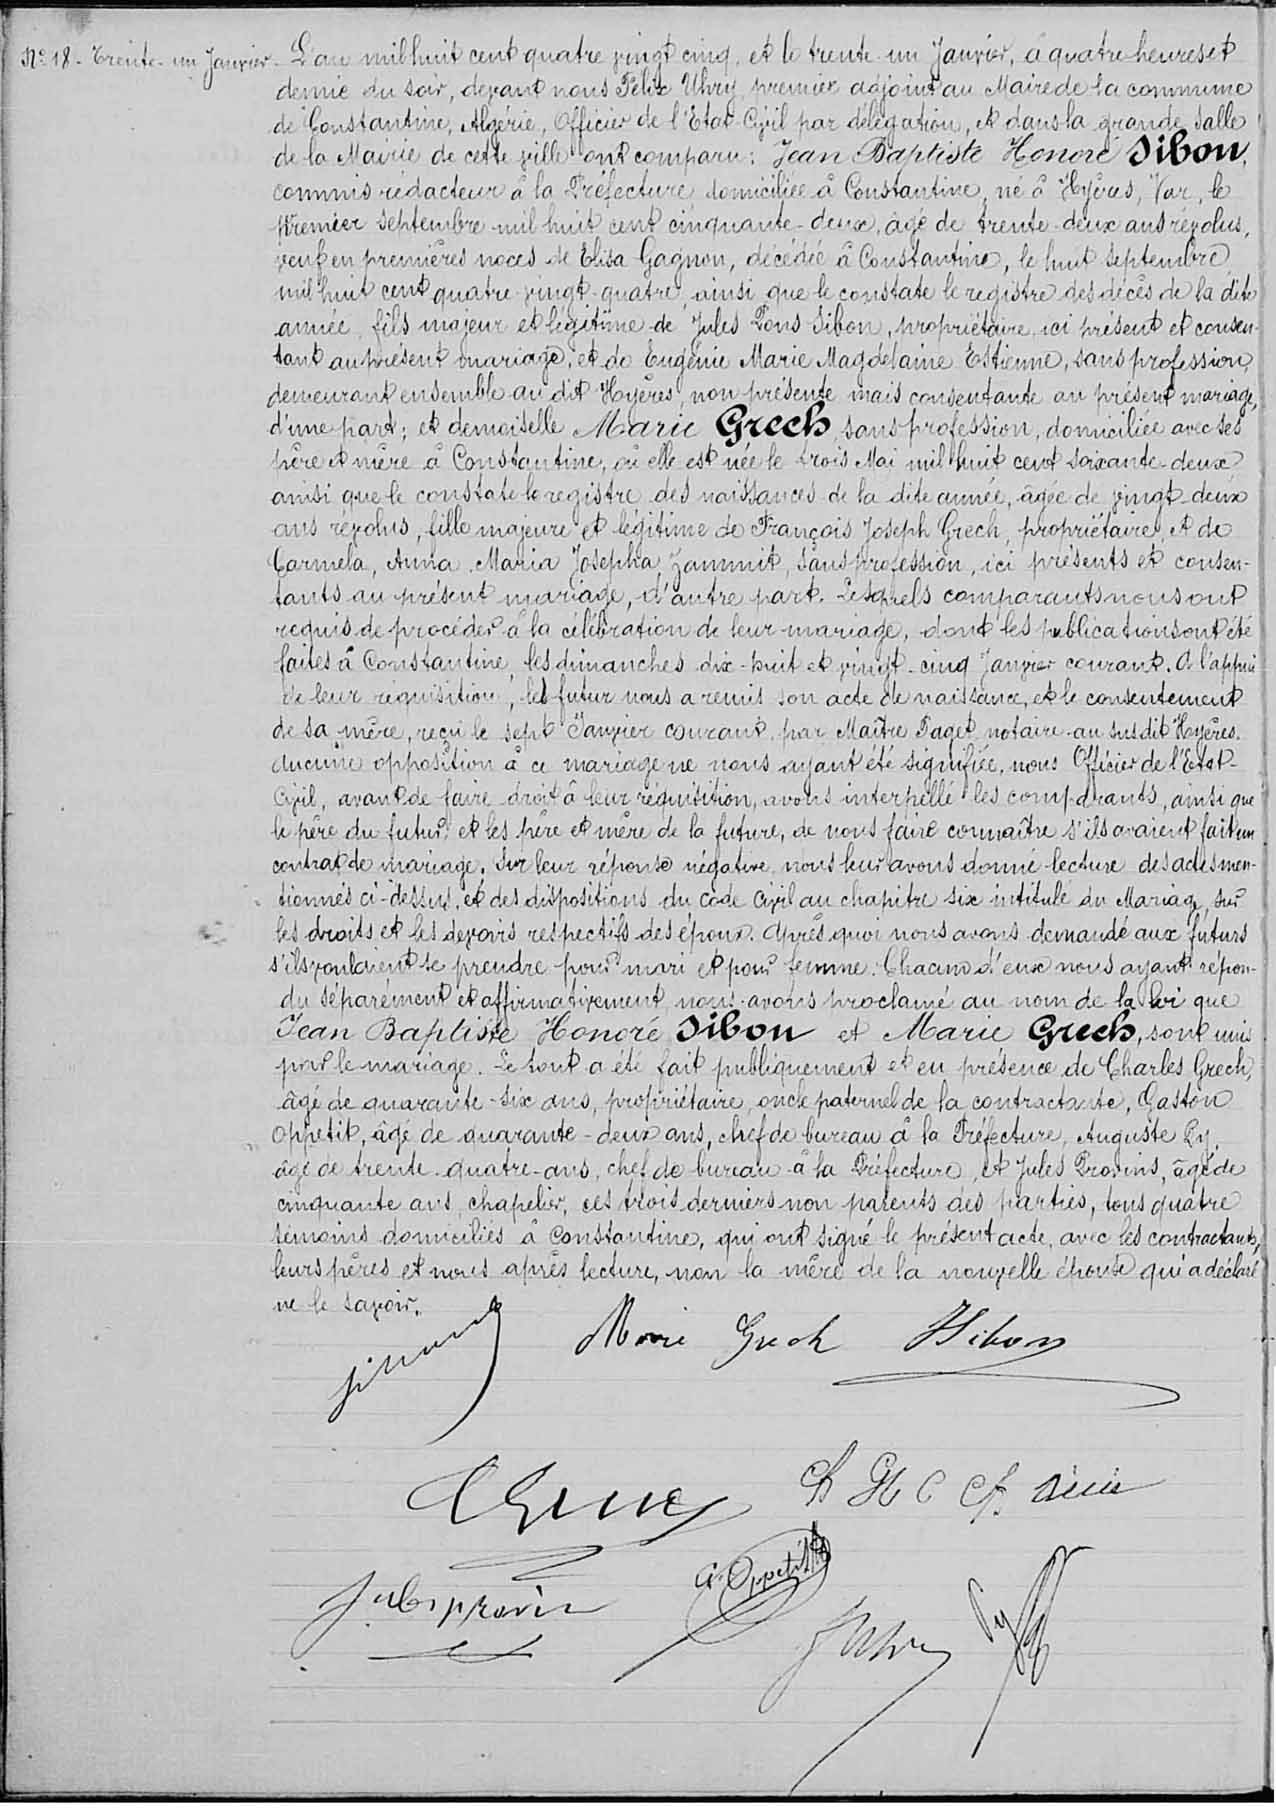 No 18 - Trente-un Janvier - L'an mil huit cent quatre vingt cinq, et le trente-un Janvier, à quatre heures et
demie du soir, devant nous Félix Uhry, premier adjoint au Maire de la commune
de Constantine, Algérie, Officier de l'Etat-Civil par délégation, et dans la grande salle
de la Mairie de cette ville ont comparu: Jean Baptiste Honoré Sibon,
commis rédacteur à la Préfecture, domiciliée à Constantine, né à Hyères, Var, le
premier septembre mil huit cent cinquante-deux, âgé de trente-deux ans révolus,
veuf en premières noces de Elisa Gagnon, décédée à Constantine, le huit septembre
mil huit cent quatre-vingt-quatre, ainsi que le constate le registre des décès de la dite
année, fils majeur et légitime de Jules Pons Sibon, propriétaire, ici présent et consen-
tant au présent mariage, et de Eugénie Marie Magdelaine Estienne, sans profession,
demeurant ensemble au dit Hyères, non présente mais consentante au présent mariage,
d'une part; et demoiselle Marie Grech, sans profession, domiciliée avec ses
père et mère à Constantine, où elle est née le trois Mai mil huit cent soixante-deux
ainsi que le constate le registre des naissances de la dite année, âgée de vingt-deux
ans révolus, fille majeure et légitime de François Joseph Grech, propriétaire, et de
Carmela, Anna Maria Josepha Zammit, sans profession, ici présents et consen-
tants au présent mariage, d'autre part. Lesquels comparants nous ont
requis de procéder à la célébration de leur mariage, dont les publications ont été
faites à Constantine, les dimanches dix-huit et vingt-cinq Janvier courant. A l'appui
de leur réquisition, le futur nous a remis son acte de naissance, et le consentement
de sa mère, reçu le sept Janvier courant, par Maître Paget, notaire au susdit Hyères.
Aucune opposition à ce mariage ne nous ayant été signifiée, nous Officier de l'Etat-
Civil, avant de faire droit à leur réquisition, avons interpellé les comparants, ainsi que
le père du futur, et les père et mère de la future, de nous faire connaître s'ils avaient fait un
contrat de mariage. Sur leur réponse négative, nous leur avons donné lecture des actes men-
tionnés ci-dessus, et des dispositions du code Civil au chapitre six intitulé du Mariage, sur
les droits et les devoirs respectifs des époux. Après quoi nous avons demandé aux futurs
s'ils voulaient se prendre pour mari et pour femme. Chacun d'eux nous ayant répon-
du séparément et affirmativement, nous avons proclamé au nom de la loi que
Jean Baptiste Honoré Sibon et Marie Grech, sont unis
par le mariage. Le tout a été fait publiquement et en présence de Charles Grech,
âgé de quarante-six ans, propriétaire, oncle paternel de la contractante, Gaston
Oppetit, âgé de quarante-deux ans, chef de bureau à la Préfecture, Auguste Py,
âgé de trente-quatre ans, chef de bureau à la Préfecture, et Jules Provins, âgé de
cinquante ans, chapelier, ces trois derniers non parents des parties, tous quatre
témoins domiciliés à Constantine, qui ont signé le présent acte, avec les contractants,
leurs pères et nous après lecture, non la mère de la nouvelle épouse qui a déclaré
ne le savoir.
Marie Grech HSibon
Jules provin G. Oppetit
Py